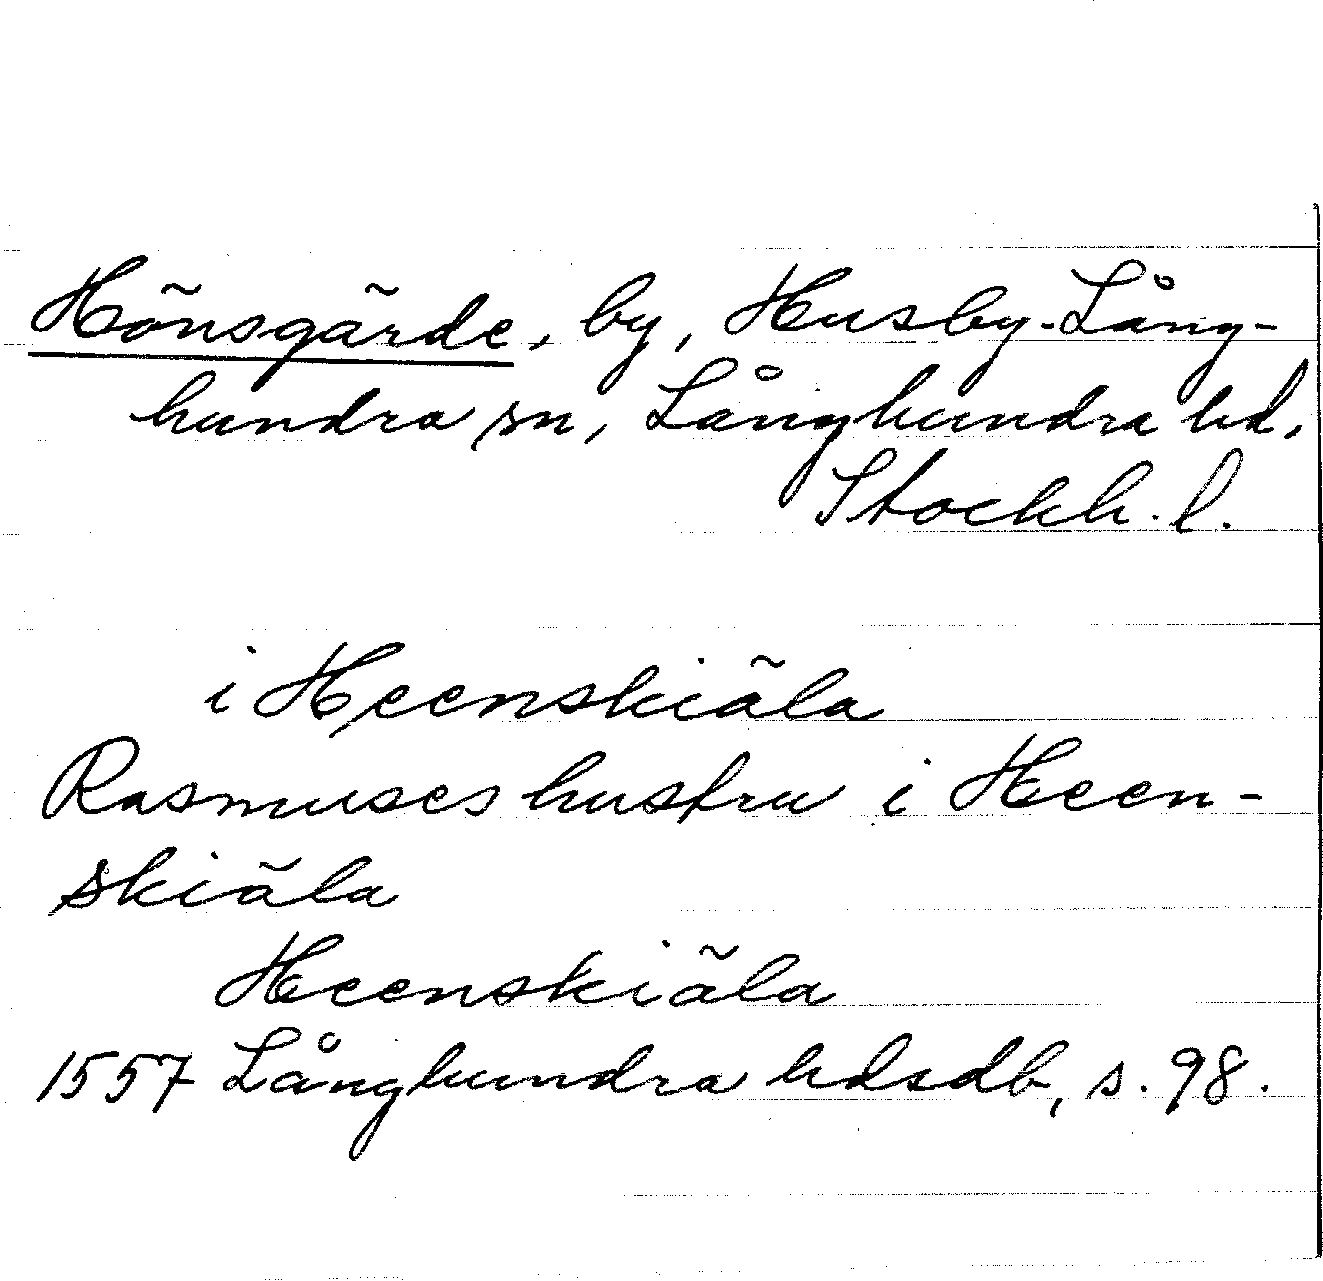 Hönsgärde, by, Husby-Lång-
hundra sn, Långhundra hd,
Stockh. l.
i Heenskiäla
Rasmuses hustru i Heen-
skiäla
Heenskiäla
1557 Långhundra hdsdb, s. 98.